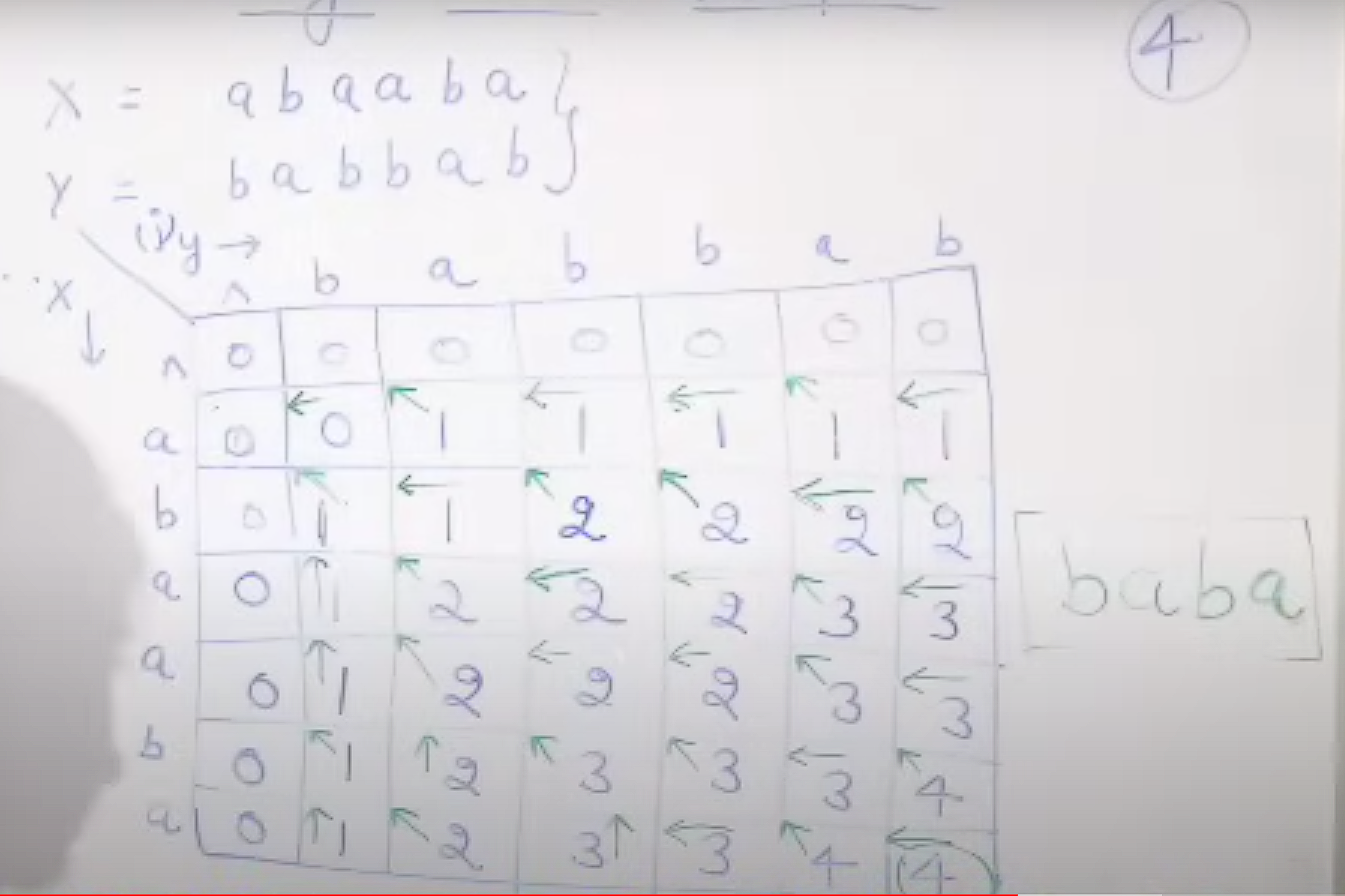 4
X = a b a a b a }
Y = b a b b a b }
(i) y →
X ↓
^ b a b b a b
^ 0 0 0 0 0 0 0
a 0 ← 0 ↖ 1 ← 1 ← 1 ↖ 1 ← 1
b 0 ↖ 1 ← 1 ↖ 2 ↖ 2 ← 2 ↖ 2
a 0 ↑ 1 ↖ 2 ← 2 ← 2 ↖ 3 ← 3
a 0 ↑ 1 ↖ 2 ← 2 ← 2 ↖ 3 ← 3
b 0 ↖ 1 ↑ 2 ↖ 3 ↖ 3 ← 3 ↖ 4
a 0 ↑ 1 ↖ 2 3 ↑ ← 3 ↖ 4 ← 4
[ b a b a ]